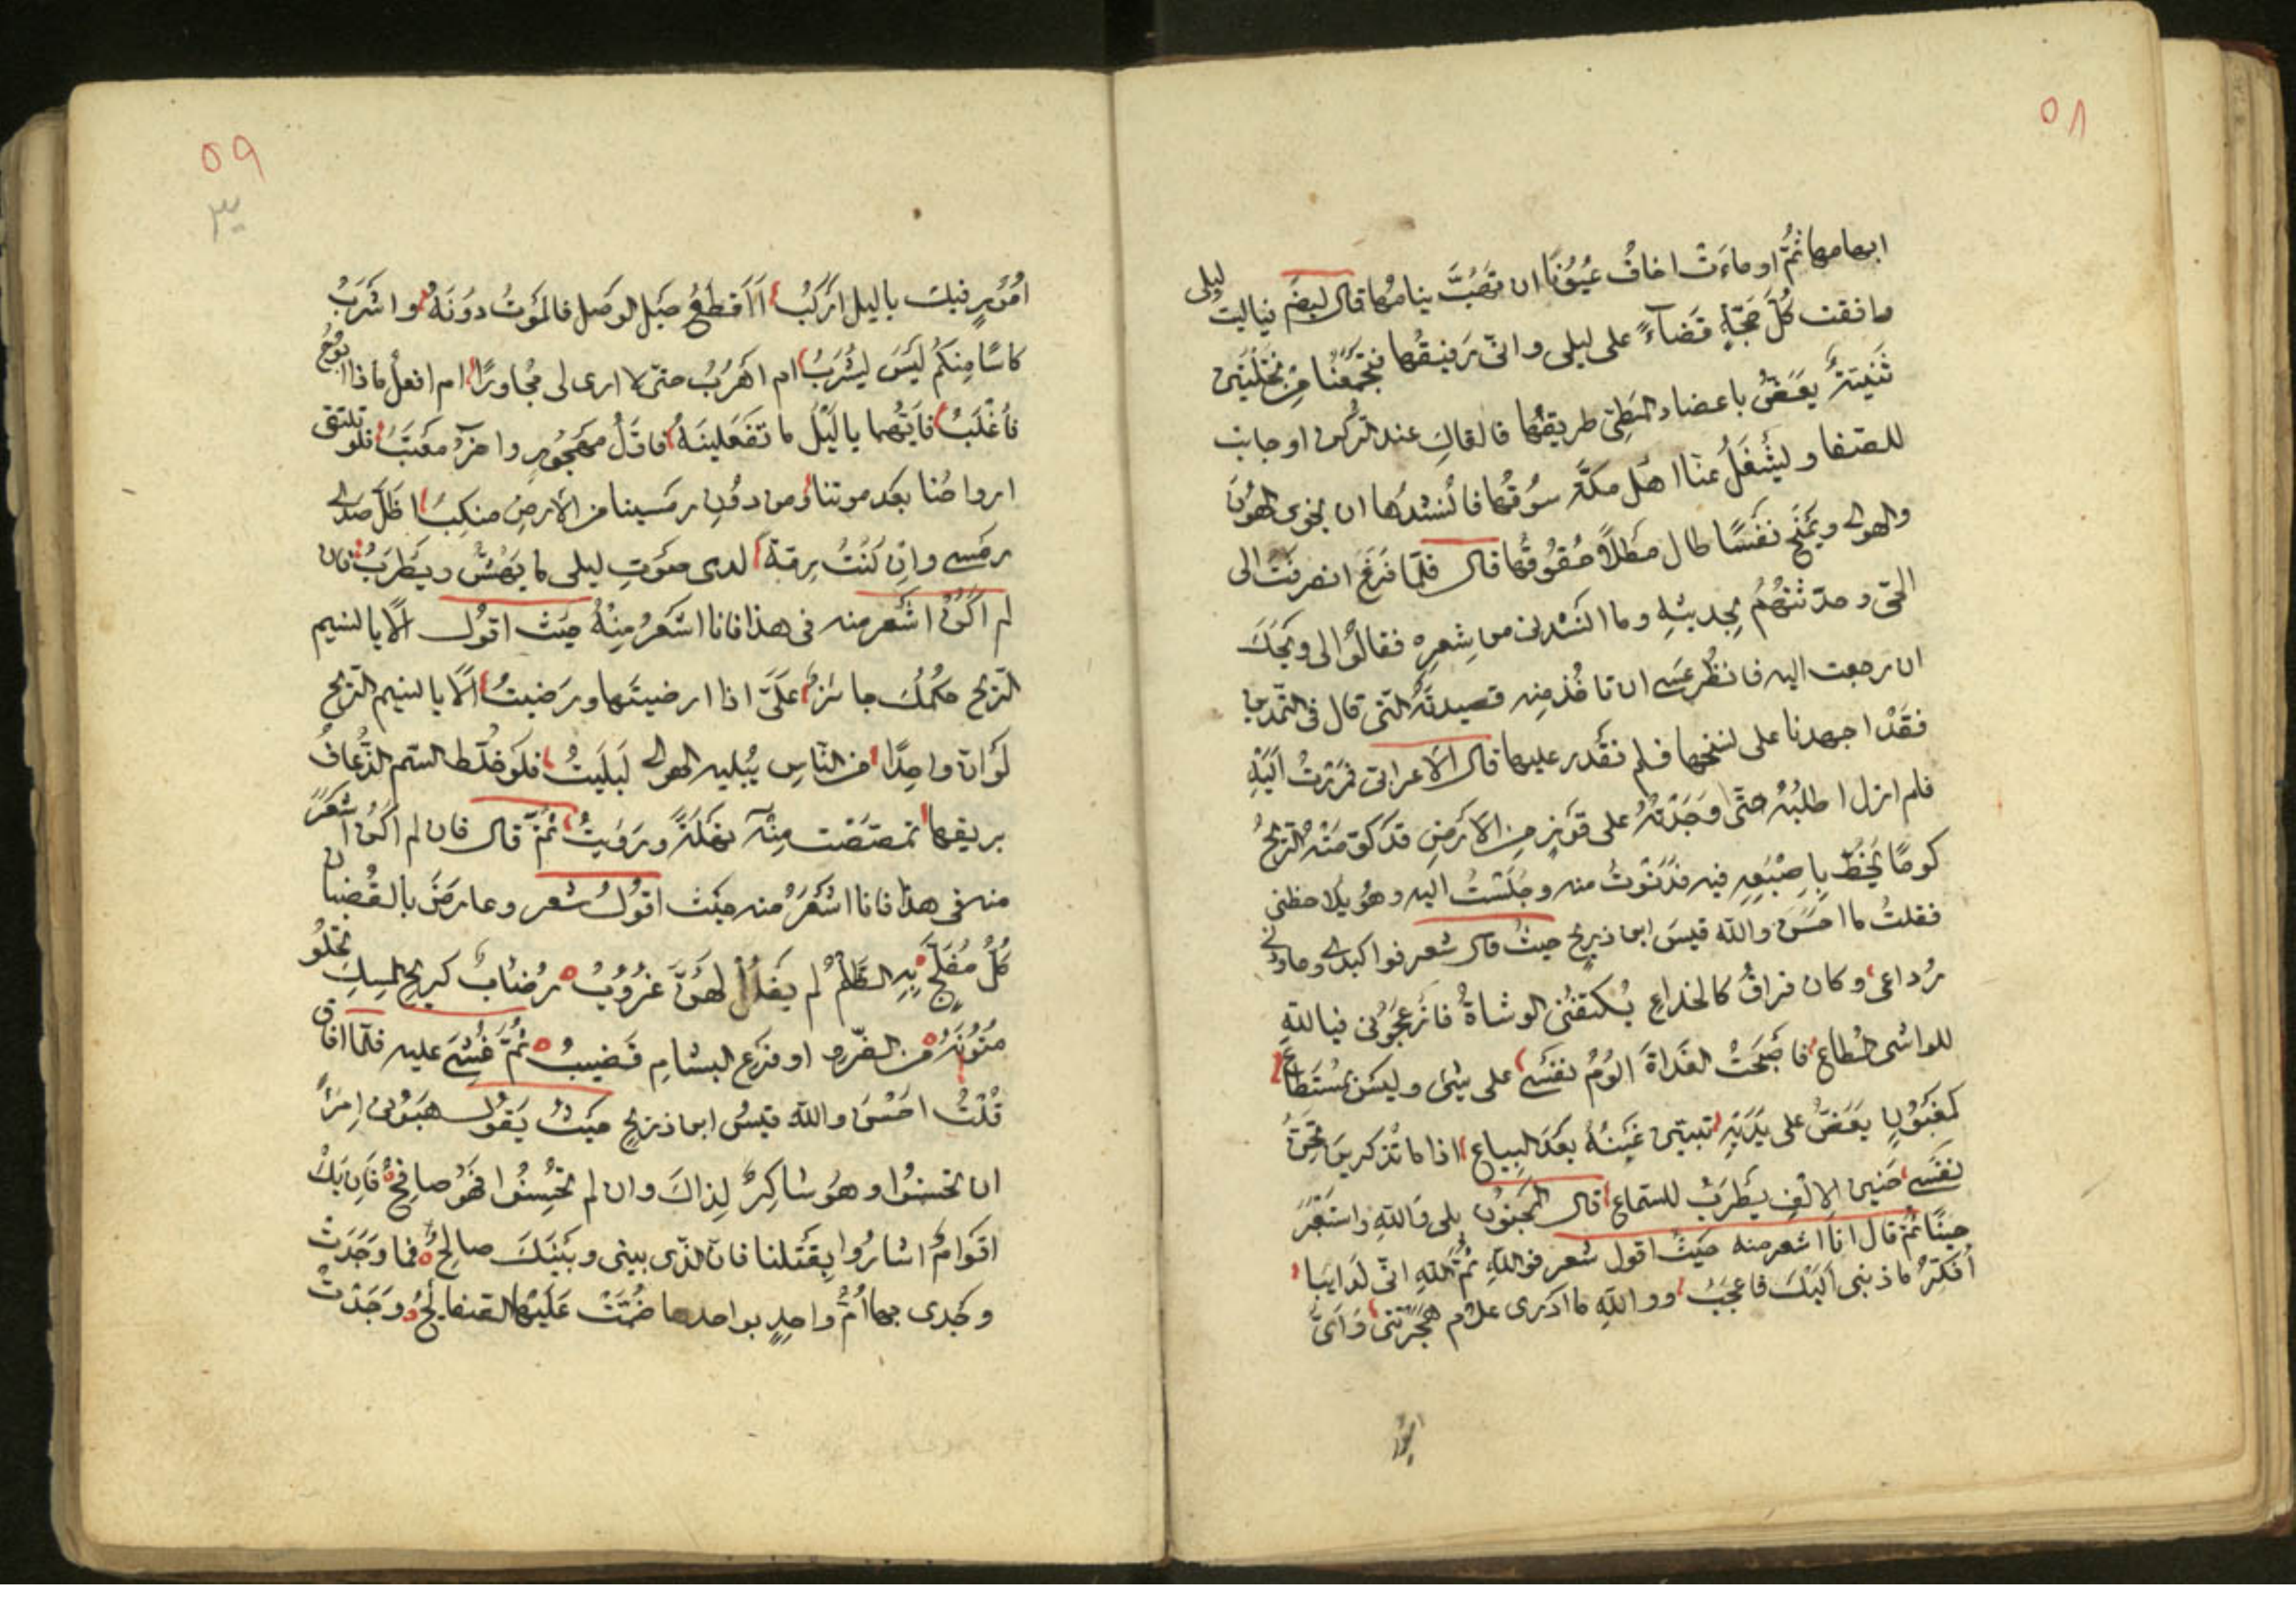 ٥٨
ابهامها ثُمَّ اوماءَتْ اخافُ عُيُوْنًا ان تَهُبَّ ينامها قال لبضم فياليت ليلى
وافقت كُلَّ حَجَّةٍ قَضَآءً على ليلى وانّى رَفيقها فتَجْمَعُنَا مِنْ نخلتين
ثَنيّتةٌ يَغَصُّ باعضاد المَطِىّ طريقُها فالقاكِ عند الركن او جانب
للصفا ويشْغَلُ عنّا اهْل مكةَ سوُقُها فانُشدُها ان يخوى الهوُن
والهوى ويَمْنَح نَفْسًا طال مَطلًا حُقُوقُها قال فلمّا فَرَغَ انصرفتُ الى
الحىّ وحدّثتهُم بحديثِهِ وما انشدنى من شِعرِهِ فقالُوا لى ويْحَكَ
ان رجعت اليه فانظُر عَسى ان تاخُذ منه قصيدتَهُ التى قال فى
فقَدْ اجهدنا على نسخها فلم نَقْدر عليها قال الاعرابى فمَرَرْتُ اليَهِ
فلم ازل اطلبُهُ حتّى وَجَدْتُهُ على قَوْزٍ من الارَضِ قَدْ كوّمَتْهُ الرّيحُ
كومًا يَخُطُّ بِاِصْبَعِهِ فيه فدَنَوْتُ منه وجَلَسْتُ اليه وهُو يلاحظنى
فقلتُ ما احسَنَ والله قيسَ ابن ذريحٍ حيثُ قال شعر فوا كبدى وعاودنى
رُداعى وكان فراقُ كالخداعِ يُكتقنُنى الوشاةُ فازْعَجُوْنى فيالله
للواشى المُطاع فاصَبَحْتُ الغَداةَ الوُمُ نفَسى على شئ وليسَ بمُسْتَطاعٍ
كمغَبُوْنٍ يعَضُّ على يَدَيْهِ تبيّن غَبْنُهُ بعَدَ البِياعِ اذا ما تُذكرينَ تَحِنُّ
نفَسى حَنينَ الاِلْفِ يَطرَبُ للسّماعِ قال المَجنوُن بلى وَاللهِ واستَعْبَرَ
حينًا ثُمَّ قال انَا اشعر منه حيَثُ اقول شعر فواللهِ ثُمَّ اللهِ انّى لَدايبا
اُفكّرُ ما ذنبى اليَكَ فاعجَبُ وواللهِ ما ادَرى علام هَجَرْتنى وَاَىَّ
امُوْر
٥٩
٣٠
امُوْرٍ فيك ياليل ارَكَبُ أاَقطَعُ حَبَل الوَصل فالمَوتُ دوُنَهُ واشَربُ
كاسًا مِنكُم ليَسَ يُشرَبُ ام اَهَرُبُ حتّى لا ارى لى مُجاورًا ام افعلُ ماذا ابوُحُ
فاُغْلَبُ فاَيُّهما يا ليَلُ ما تفَعلينَهُ فاوّلُ مهَجُوُرٍ واخرُ معَتَبُ فلو تلتقى
ارواحُنا بعَد موتنا ومن دوُنِ رمَسينا من الارَضِ منكِبُ لظَلّ صَدى
رمَسى وانِ كُنْتُ رِمّةً لدى صَوتِ ليلى يَهُشُّ ويَطرَبُ فان
لم اكُنْ اشعَر منه فى هذا فانا اشَعرُ مِنْهُ حيَث اقوُل الَا يا نسيم
الرّيحِ حكمُكَ جائزٌ علَىَّ اذا ارضيتَها ورَضيتُ الَا يا نسيم الرّيح
لوَ انّ واحِدًا من النّاسِ يُبليه الهوى لَبَليَتُ فلَو خُلط السّم الذُّعافُ
بريقها تمصّصَت مِنْهُ نهَلَةً ورَوَيتُ ثُمَّ قال فان لم اكُن اشعَرَ
منه فى هذا فانا اشَعَرُ منه حيَث اقوُلُ شعر وعارضَنَ بالقُضبان
كُلَّ مُفَلّجٍ بِهِ الظّلْمُ لم يفَلُلْ لَهُنَّ غُرُوُبُ رُضابٌ كريح المِسِكِ تجلُو
مُتوُنَهُ من الضّرو او فرَع البشامِ قَضيبُ ثُمَّ غُشىَ عليه فلمّا افاق
قلْتُ احَسَنَ والله قيسُ ابن ذريحٍ حيَثُ يَقوُل هبَوُنى اِمرَأً
ان تحُسنوُا وهوُ شاكِرٌ لِذاكَ وان لم تحُسِنُوا فهَوُ صافحُ فاِن يَكُ
اقوَامٌ اشارُوا بِقتَلنا فانّ الذّى بينى وبَيْنَكَ صالِحُ فما وَجَدَتْ
وجدى بها اُمُّ واحِدٍ بواحدها ضُمّتْ عَلَيْهِ الصّفايحُ ووَجَدَتْ